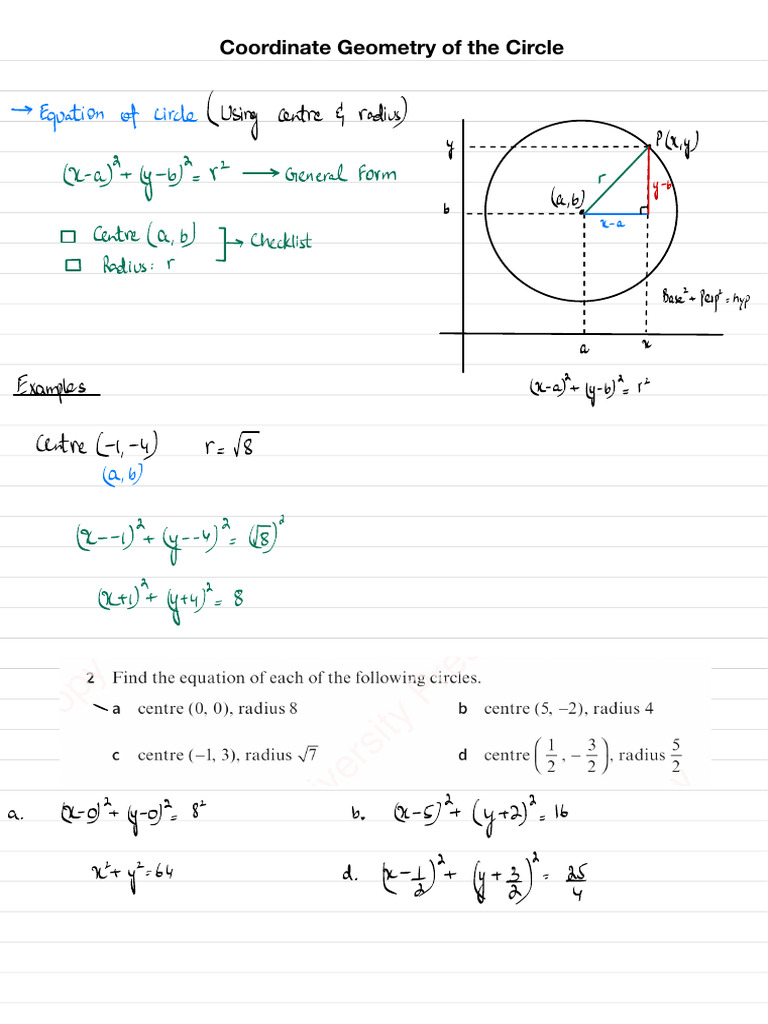 Coordinate Geometry of the Circle
→ Equation of circle (Using centre & radius)
(x-a)² + (y-b)² = r² → General Form
□ Centre (a, b)
□ Radius: r
→ Checklist
y
P(x,y)
r
y-b
b
(a,b)
x-a
Base² + Perp² = hyp
a
x
(x-a)² + (y-b)² = r²
Examples
Centre (-1, -4) r = √8
(a, b)
(x--1)² + (y--4)² = (√8)²
(x+1)² + (y+4)² = 8
2 Find the equation of each of the following circles.
a centre (0, 0), radius 8 b centre (5, −2), radius 4
c centre (−1, 3), radius √7 d centre (1/2, −3/2), radius 5/2
a. (x-0)² + (y-0)² = 8² b. (x-5)² + (y+2)² = 16
x² + y² = 64 d. (x-1/2)² + (y+3/2)² = 25/4